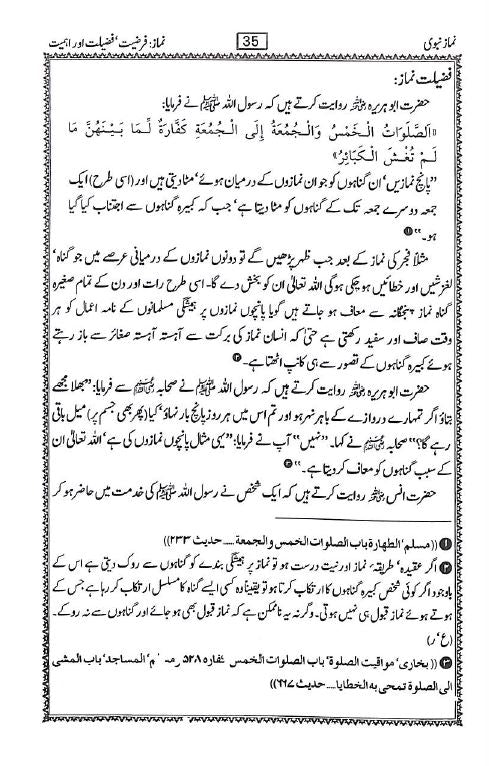 نماز نبوی 35 نماز: فرضیت‘ فضیلت اور اہمیت
فضیلت نماز:
حضرت ابو ہریرہ رضی اللہ عنہ روایت کرتے ہیں کہ رسول اللہ ﷺ نے فرمایا:
«اَلصَّلَوَاتُ الْخَمْسُ وَالْجُمُعَةُ إِلَى الْجُمُعَةِ كَفَّارَةٌ لِّمَا بَيْنَهُنَّ مَا
لَمْ تُغْشَ الْكَبَائِرُ»
’’پانچ نمازیں‘ ان گناہوں کو جو ان نمازوں کے درمیان ہوئے‘ مٹا دیتی ہیں اور (اسی طرح) ایک
جمعہ دوسرے جمعہ تک کے گناہوں کو مٹا دیتا ہے‘ جب کہ کبیرہ گناہوں سے اجتناب کیا گیا
ہو۔‘‘ ①
مثلاً فجر کی نماز کے بعد جب ظہر پڑھیں گے تو دونوں نمازوں کے درمیانی عرصے میں جو گناہ‘
لغزشیں اور خطائیں ہو چکی ہوگی اللہ تعالیٰ ان کو بخش دے گا۔ اسی طرح رات اور دن کے تمام صغیرہ
گناہ نماز پنجگانہ سے معاف ہو جاتے ہیں گویا پانچوں نمازوں پر ہمیشگی مسلمانوں کے نامہ اعمال کو ہر
وقت صاف اور سفید رکھتی ہے حتیٰ کہ انسان نماز کی برکت سے آہستہ آہستہ صغائر سے باز رہتے
ہوئے کبیرہ گناہوں کے تصور سے ہی کانپ اٹھتا ہے۔ ②
حضرت ابو ہریرہ رضی اللہ عنہ روایت کرتے ہیں کہ رسول اللہ ﷺ نے صحابہ رضی اللہ عنہم سے فرمایا: ’’بھلا مجھے
بتاؤ اگر تمہارے دروازے کے باہر نہر ہو اور تم اس میں ہر روز پانچ بار نہاؤ‘ کیا (پھر بھی جسم پر) میل باقی
رہے گا؟‘‘ صحابہ رضی اللہ عنہم نے کہا۔ ’’نہیں‘‘ آپ نے فرمایا: ’’یہی مثال پانچوں نمازوں کی ہے‘ اللہ تعالیٰ ان
کے سبب گناہوں کو معاف کر دیتا ہے۔‘‘ ③
حضرت انس رضی اللہ عنہ روایت کرتے ہیں کہ ایک شخص نے رسول اللہ ﷺ کی خدمت میں حاضر ہو کر
① ((مسلم‘ الطهارة باب الصلوات الخمس والجمعة ..... حدیث ۲۳۳))
② اگر عقیدہ‘ طریقہ نماز اور نیت درست ہو تو نماز پر ہمیشگی بندے کو گناہوں سے روک دیتی ہے اس کے
باوجود اگر کوئی شخص کبیرہ گناہوں کا ارتکاب کرتا ہو تو یقیناً وہ کسی ایسے گناہ کا مسلسل ارتکاب کر رہا ہے جس کے
ہوتے ہوئے نماز قبول ہی نہیں ہوتی۔ وگرنہ یہ ناممکن ہے کہ نماز قبول بھی ہو جائے اور گناہوں سے نہ روکے۔
(ع‘ر)
③ ((بخاری‘ مواقیت الصلوة‘ باب الصلوات الخمس کفارہ ۵۲۸ م‘ المساجد‘ باب المشی
الی الصلوة تمحی به الخطایا ..... حدیث ۶۶۷))